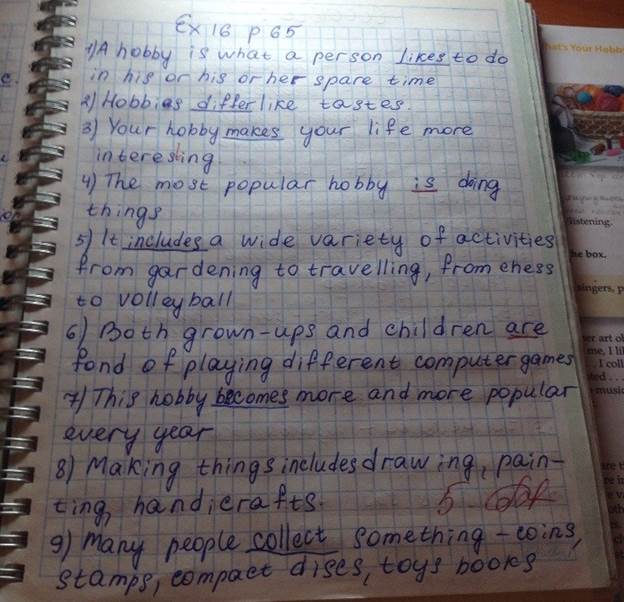 Ex 16 p 65
1) A hobby is what a person likes to do
in his or his or her spare time
2) Hobbies differ like tastes.
3) Your hobby makes your life more
interesting
4) The most popular hobby is doing
things
5) It includes a wide variety of activities
from gardening to travelling, from chess
to volleyball
6) Both grown-ups and children are
fond of playing different computer games
7) This hobby becomes more and more popular
every year
8) Making things includes drawing, pain-
ting, handicrafts.
5
9) Many people collect something - coins,
stamps, compact discs, toys books
at's Your Hobby
listening.
he box.
singers, p
er art of
me, I li
I coll
ted
music